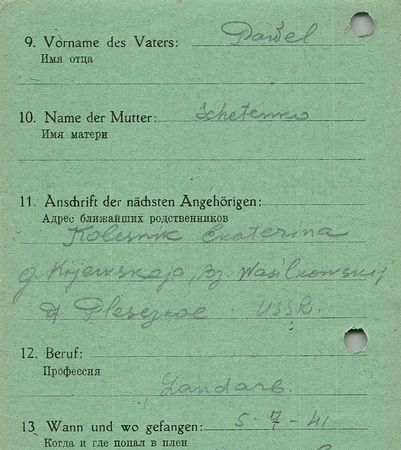 9. Vorname des Vaters: Pawel
Имя отца
10. Name der Mutter: Schetenko
Имя матери
11. Anschrift der nächsten Angehörigen:
Адрес ближайших родственников
Kolesnik Ekaterina
g. Kijewskaja, Bz. Wasilkowskij
Plesezkoe USSR.
12. Beruf:
Профессия
Landarb.
13 Wann und wo gefangen: 5-7-41
Когда и где попал в плен